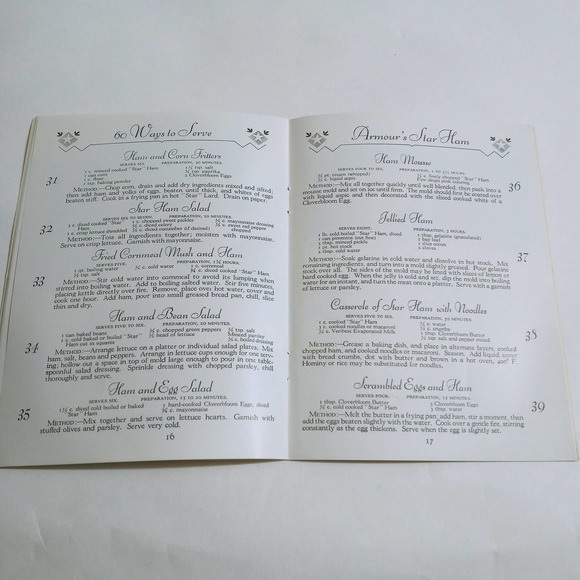 60 Ways to Serve
31
Ham and Corn Fritters
SERVES SIX. PREPARATION, 20 MINUTES.
1 c. minced cooked "Star" Ham
1 can corn
1 c. flour
1 tsp. baking powder
½ tsp. salt
¼ tsp. paprika
2 Cloverbloom Eggs
METHOD:—Chop corn, drain and add dry ingredients mixed and sifted;
then add ham and yolks of eggs, beaten until thick, and whites of eggs
beaten stiff. Cook in a frying pan in hot "Star" Lard. Drain on paper.
32
Star Ham Salad
SERVES SIX TO SEVEN. PREPARATION, 20 MINUTES.
diced cooked "Star"
Ham
1 c. crisp lettuce shredded
c. chopped sweet pickles
c. diced celery
c. diced cucumber (if desired)
c. mayonnaise dressing
c. sweet red pepper
chopped
METHOD:—Toss all ingredients together; moisten with mayonnaise.
Serve on crisp lettuce. Garnish with mayonnaise.
33
Fried Cornmeal Mush and Ham
SERVES FIVE. PREPARATION, HOURS.
1 qt. boiling water
c. cold water
c. cornmeal
tsp. salt
c. diced cooked "Star" Ham
METHOD:—Stir cold water into cornmeal to avoid its lumping when
placed into boiling water. Add to boiling salted water. Stir five minutes,
setting kettle directly over fire. Remove, place over hot water, cover and
cook one hour. Add ham, pour into small greased bread pan, chill, slice
thin and dry.
34
Ham and Bean Salad
SERVES FIVE TO SIX. PREPARATION, 20 MINUTES.
1 can baked beans
c. cold baked or boiled "Star"
Ham cut in squares
c. chopped green peppers
head of lettuce
tsp. salt
Minced parsley
c. boiled dressing
METHOD:—Arrange lettuce on a platter or individual salad plates. Mix
ham, salt, beans and peppers. Arrange in lettuce cups enough for one serv-
ing; hollow out a space in top of mold large enough to pour in one table-
spoonful salad dressing. Sprinkle dressing with chopped parsley, chill
thoroughly and serve.
35
Ham and Egg Salad
SERVES SIX. PREPARATION, 15 TO 20 MINUTES.
1½ c. diced cold boiled or baked
"Star" Ham
3 hard-cooked Cloverbloom Eggs, diced
c. mayonnaise
METHOD:—Mix together and serve on lettuce hearts. Garnish with
stuffed olives and parsley. Serve very cold.
16
Armour's Star Ham
36
Ham Mousse
SERVES FOUR TO SIX. PREPARATION, 1 TO 1½ HOURS.
pt. cream (whipped)
c. liquid aspic
c. finely chopped "Star" Ham
Few drops pink coloring
METHOD:—Mix all together quickly until well blended, then pass into a
mousse mold and set on ice until firm. The mold should first be coated over
with liquid aspic and then decorated with the sliced cooked white of a
Cloverbloom Egg.
37
Jellied Ham
SERVES EIGHT. PREPARATION, HOURS.
1 lb. cold boiled "Star" Ham, diced
1 can pimentos (cut fine)
1 tbsp. minced pickle
1 pt. hot stock
1 c. cold water
1 tbsp. gelatine (granulated)
1 bay leaf
1 slice onion
2 cloves
METHOD:—Soak gelatine in cold water and dissolve in hot stock. Mix
remaining ingredients, and turn into a mold slightly greased. Pour gelatine
stock over all. The sides of the mold may be lined with slices of lemon or
hard cooked egg. When the jelly is cold and set, dip the mold into boiling
water for an instant, and turn the meat onto a platter. Serve with a garnish
of lettuce or parsley.
38
Casserole of Star Ham with Noodles
SERVES FIVE TO SIX. PREPARATION, 30 MINUTES.
2 c. cooked "Star" Ham
3 c. cooked noodles or macaroni
c. Veribest Evaporated Milk
c. water
c. crumbs
1 tbsp. Cloverbloom Butter
tsp. salt and pepper mixed
METHOD:—Grease a baking dish, and place in alternate layers, cooked
chopped ham, and cooked noodles or macaroni. Season. Add liquid, cover
with bread crumbs, dot with butter and brown in a hot oven, 400° F.
Hominy or rice may be substituted for noodles.
39
Scrambled Eggs and Ham
SERVES FOUR. PREPARATION, 15 MINUTES.
1 tbsp. Cloverbloom Butter
c. cold cooked "Star" Ham
5 Cloverbloom Eggs
3 tbsp. water
METHOD:—Melt the butter in a frying pan; add ham, stir a moment, then
add the eggs beaten slightly with the water. Cook over a gentle fire, stirring
constantly as the egg thickens. Serve when the egg is slightly set.
17